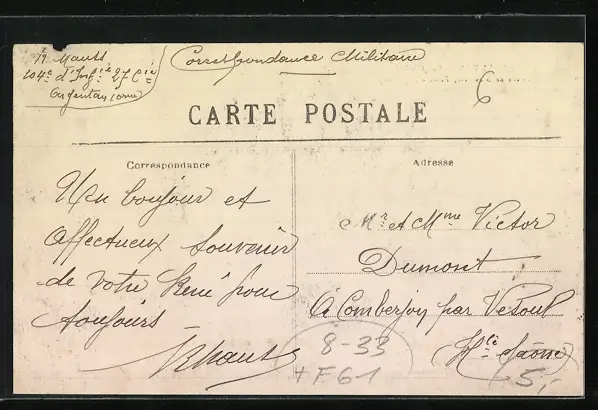 R. Hauts
104e d'Infie 27 Cie
Argentan (orne)
Correspondance Militaire
6
CARTE POSTALE
Correspondance
Un bonjour et
affectueux souvenir
de votre René pour
toujours
RHauts
Adresse
Mr et Mme Victor
Dumont
à Comberjon par Vesoul
(Hte Saône)
8-33
+F61
5,-